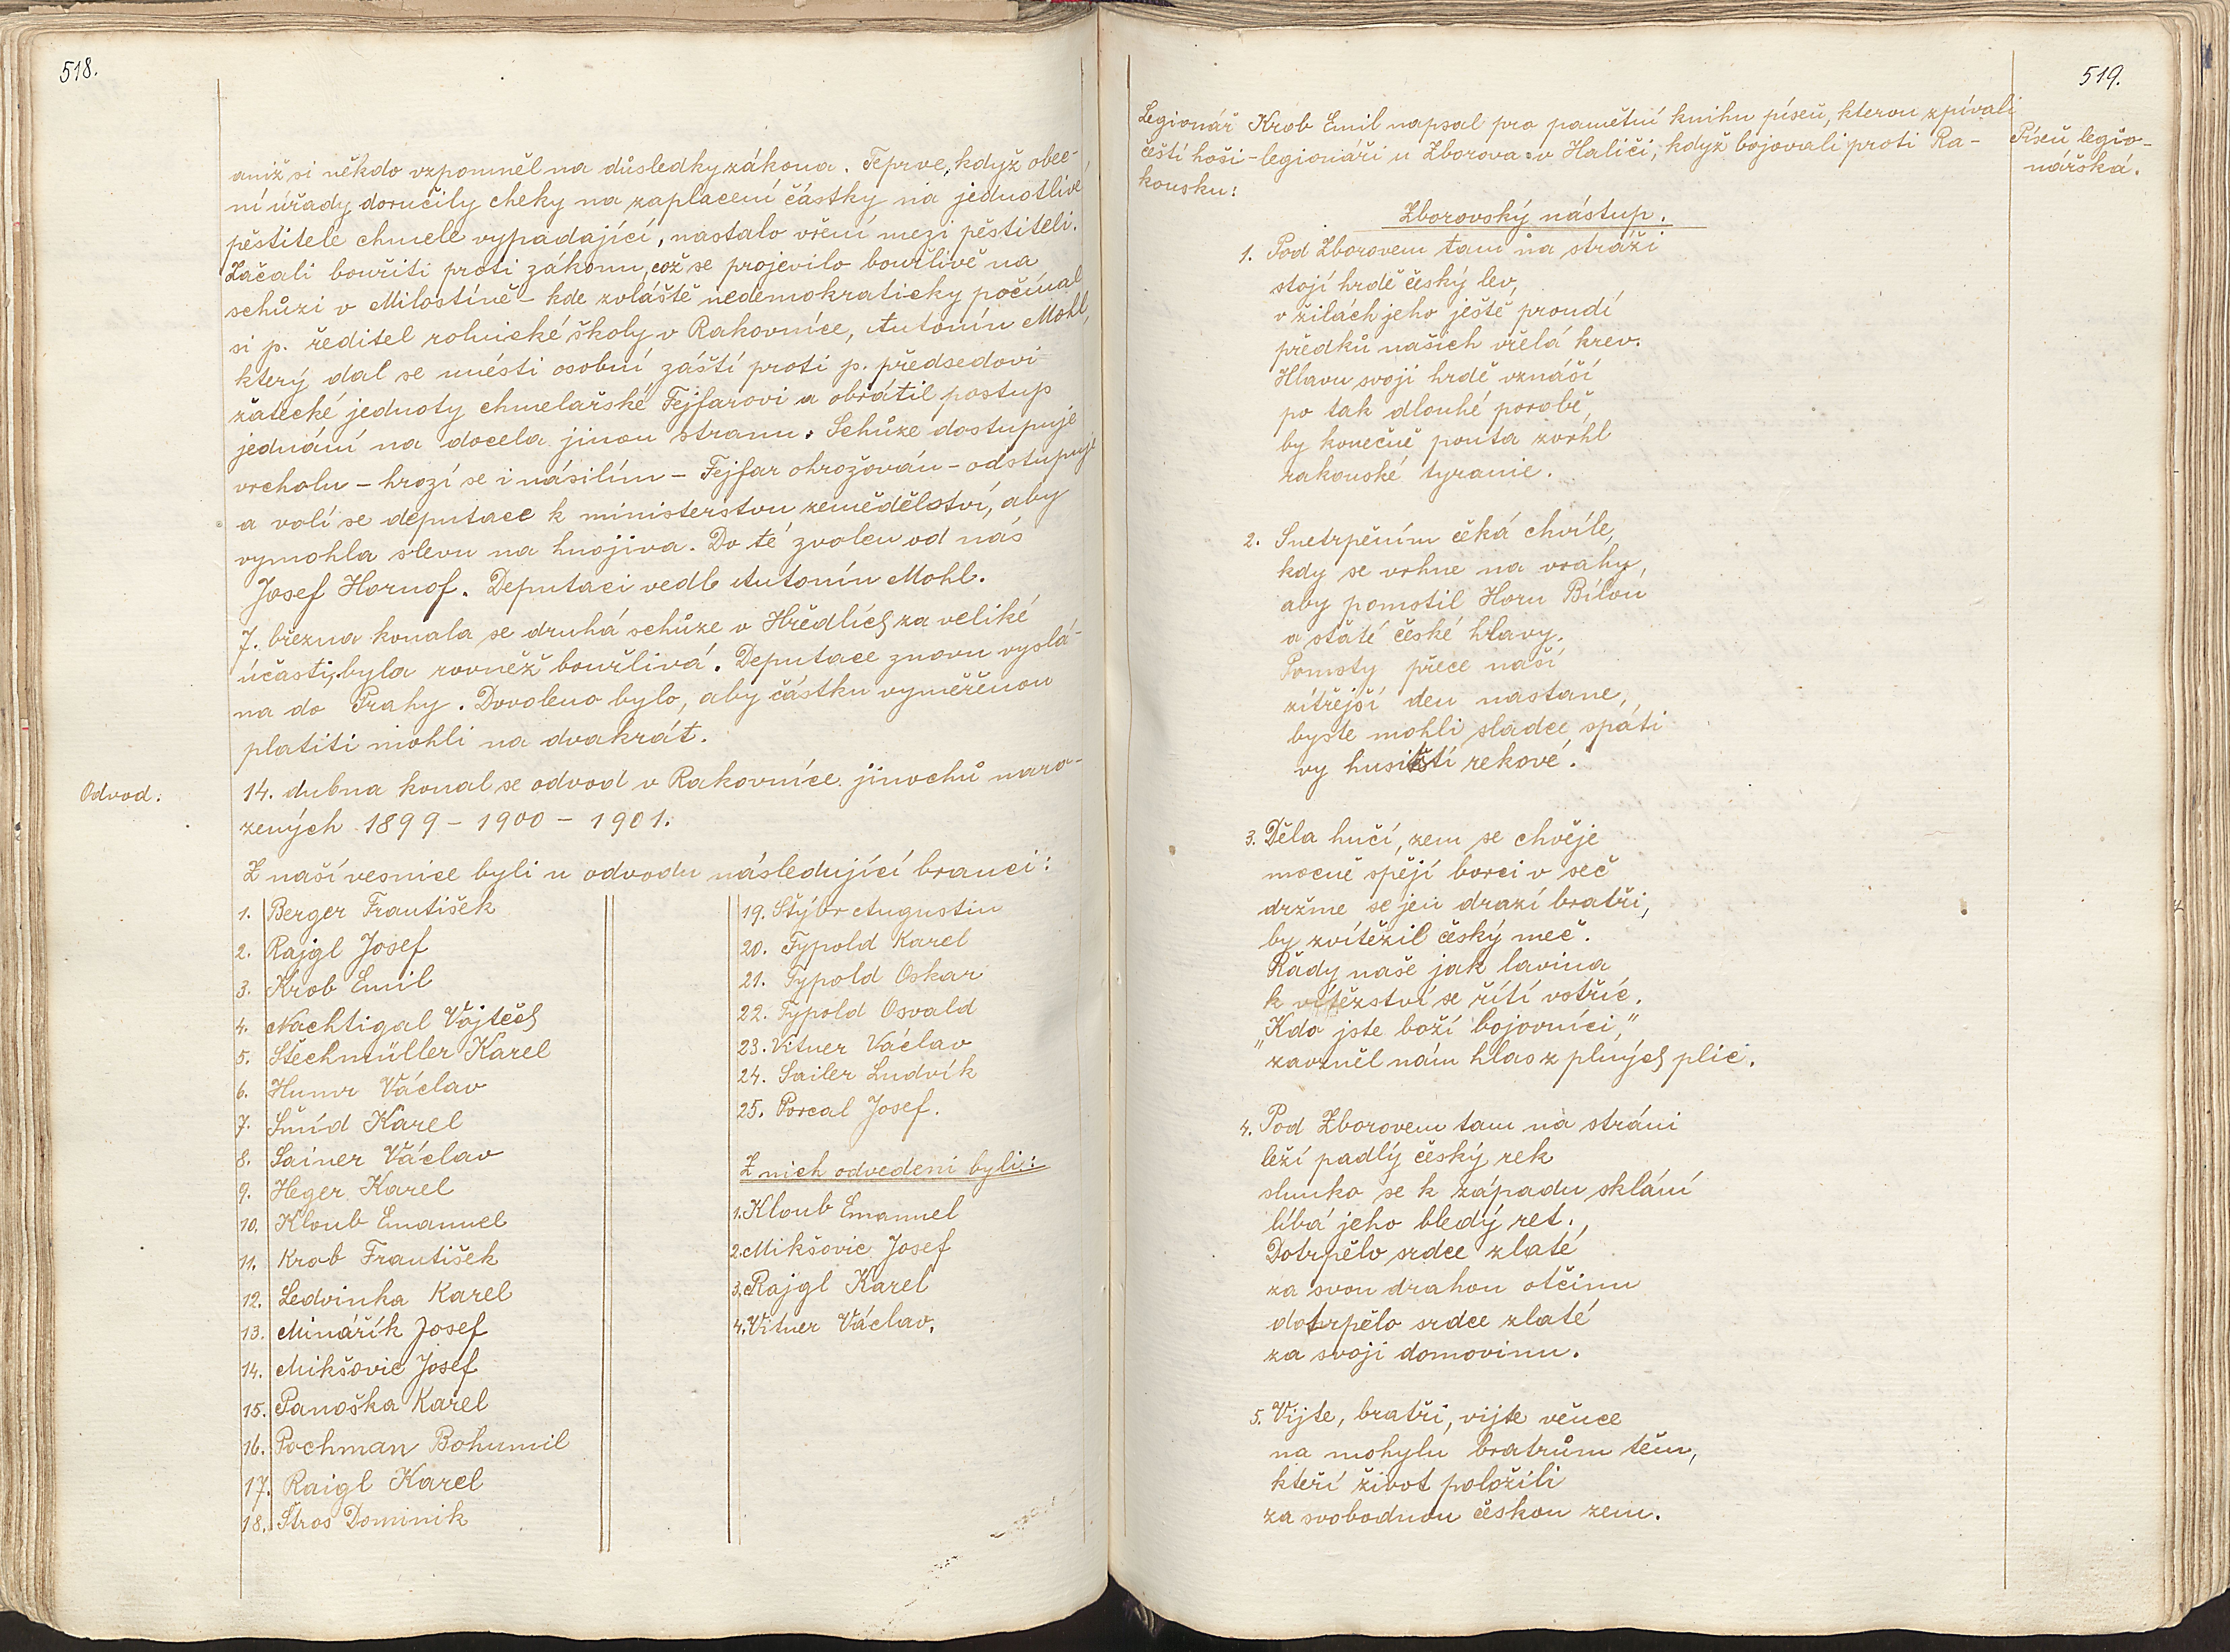 518.
aniž si někdo vzpomněl na důsledky zákona. Teprve, když obec-
ní úřady doručily cheky na zaplacení částky na jednotlivé
pěstitele chmele vypadající, nastalo vření mezi pěstiteli.
Začali bouřiti proti zákonu, což se projevilo bouřlivě na
schůzi v Milostíně – kde zvláště nedemokraticky počínal
si p. ředitel rolnické školy v Rakovníce, Antonín Mohl,
který dal se unésti osobní záští proti p. předsedovi
žatecké jednoty chmelařské Fejfarovi a obrátil postup
jednání na docela jinou stranu. Schůze dostupuje
vrcholu – hrozí se i násilím – Fejfar ohrožován – odstupuje
a volí se deputace k ministerstvu zemědělství, aby
vymohla slevu na hnojiva. Do té zvolen od nás
Josef Hornof. Deputaci vedl Antonín Mohl.
7. března konala se druhá schůze v Hředlích za veliké
účasti, byla rovněž bouřlivá. Deputace znovu vyslá-
na do Prahy. Dovoleno bylo, aby částku vyměřenou
platiti mohli na dvakrát.
Odvod.
14. dubna konal se odvod v Rakovníce jinochů naro-
zených 1899 – 1900 – 1901.
Z naší vesnice byli u odvodu následující branci:
1. Berger František
2. Rajgl Josef
3. Krob Emil
4. Nachtigal Vojtěch
5. Štechmüller Karel
6. Humr Václav
7. Šmíd Karel
8. Sainer Václav
9. Heger Karel
10. Kloub Emanuel
11. Krob František
12. Ledvinka Karel
13. Minářík Josef
14. Mikšovic Josef
15. Panoška Karel
16. Pochman Bohumil
17. Raigl Karel
18. Štros Dominik
19. Stýbr Augustin
20. Typold Karel
21. Typold Oskar
22. Typold Osvald
23. Vitner Václav
24. Sailer Ludvík
25. Porcal Josef.
Z nich odvedeni byli:
1. Kloub Emanuel
2. Mikšovic Josef
3. Rajgl Karel
4. Vitner Václav.
519.
Legionář Krob Emil napsal pro pamětní knihu píseň, kterou zpívali
čeští hoši – legionáři u Zborova v Haliči, když bojovali proti Ra-
kousku:
Píseň legio-
nářská.
Zborovský nástup.
1. Pod Zborovem tam na stráži
stojí hrdě český lev,
v žilách jeho ještě proudí
předků našich vřelá krev.
Hlavu svoji hrdě vznáší
po tak dlouhé porobě,
by konečně pouta zvrhl
rakouské tyranie.
2. S netrpěním čeká chvíle,
kdy se vrhne na vrahy,
aby pomstil Horu Bílou
a státé české hlavy.
Pomsty přece naší
zítřejší den nastane,
byste mohli sladce spáti
vy husitští rekové.
3. Děla hučí, zem se chvěje
mocně spějí borci v seč
držme se jen drazí bratři,
by zvítězil český meč.
Řady naše jak lavina
k vítězství se řítí vstříc.
„Kdo jste boží bojovníci,"
zavzněl nám hlas z plných plic.
4. Pod Zborovem tam na stráni
leží padlý český rek
slunko se k západu sklání
líbá jeho bledý ret.,
Dotrpělo srdce zlaté
za svou drahou otčinu
dotrpělo srdce zlaté
za svoji domovinu.
5. Vijte, bratři, vijte věnce
na mohylu bratrům těm,
kteří život položili
za svobodnou českou zem.